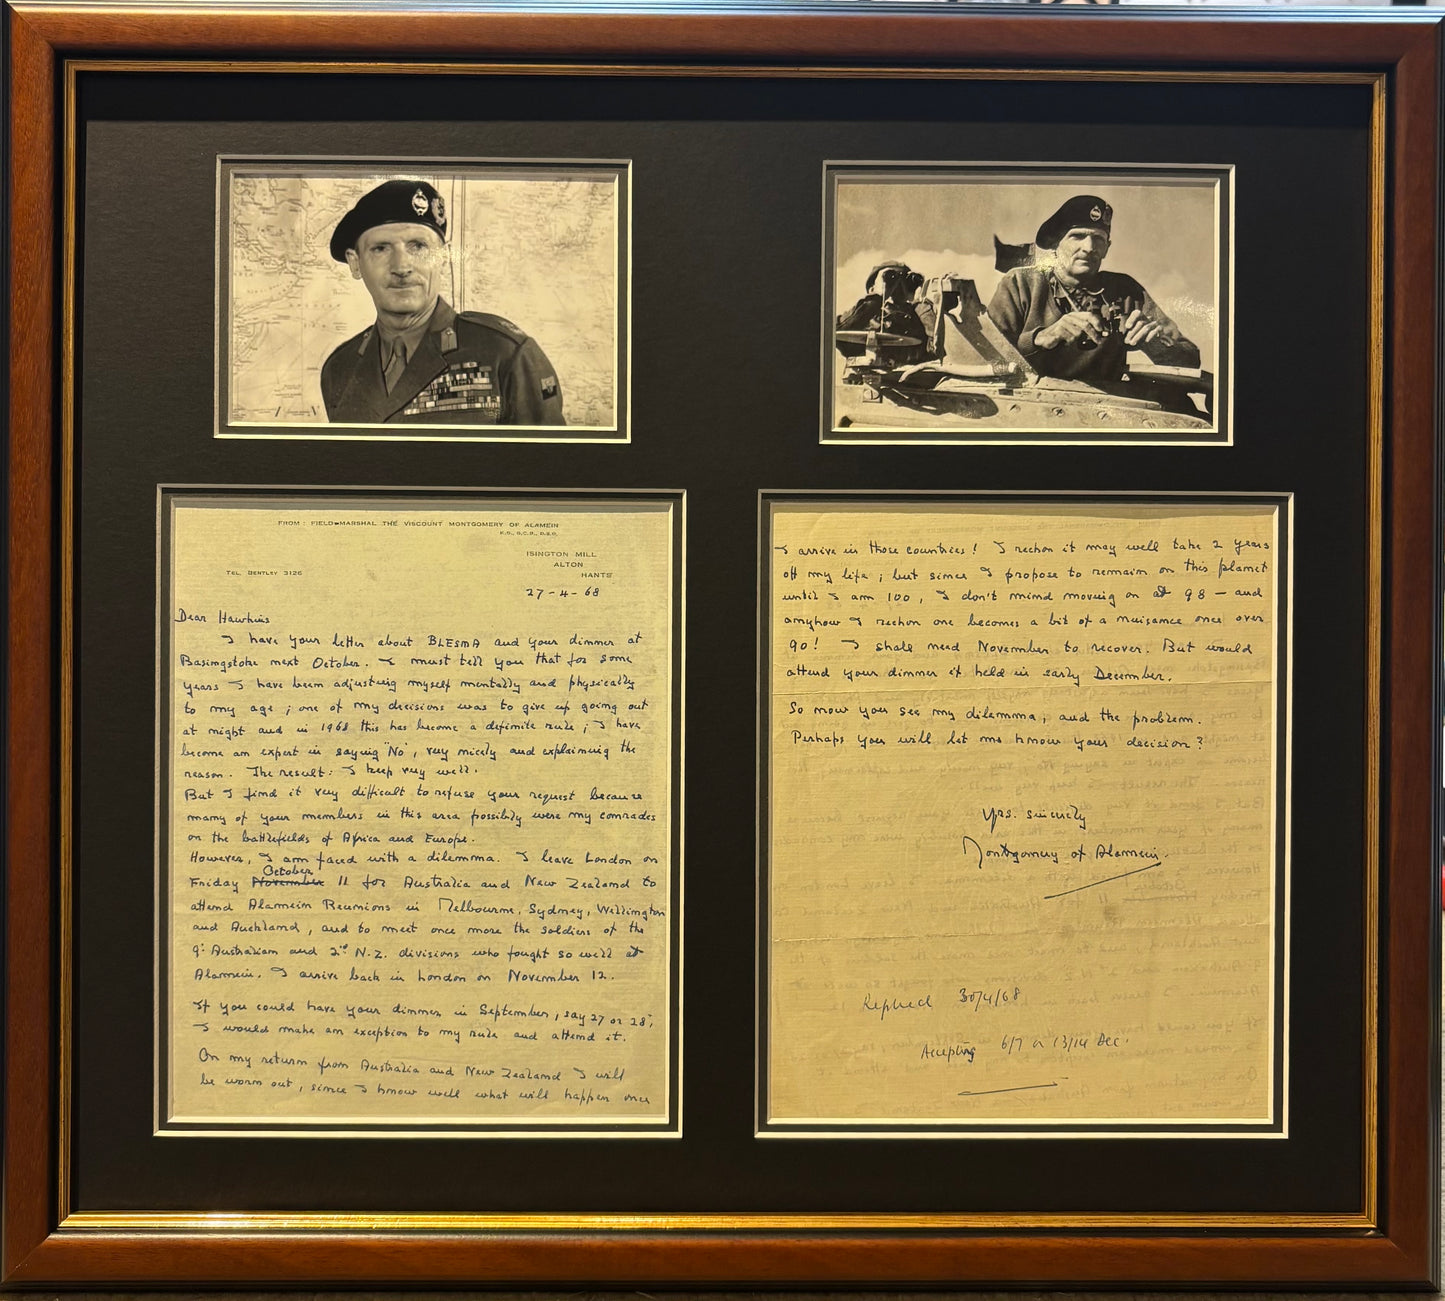 FROM : FIELD-MARSHAL THE VISCOUNT MONTGOMERY OF ALAMEIN
K.G., G.C.B., D.S.O.
ISINGTON MILL
ALTON
HANTS
TEL. BENTLEY 3126
27-4-68
Dear Hawkins
I have your letter about BLESMA and your dinner at
Basingstoke next October. I must tell you that for some
years I have been adjusting myself mentally and physically
to my age; one of my decisions was to give up going out
at night and in 1968 this has become a definite rule; I have
become an expert in saying "No", very nicely and explaining the
reason. The result: I keep very well.
But I find it very difficult to refuse your request because
many of your members in this area possibly were my comrades
on the battlefields of Africa and Europe.
However, I am faced with a dilemma. I leave London on
October
Friday November 11 for Australia and New Zealand to
attend Alamein Reunions in Melbourne, Sydney, Wellington
and Auckland, and to meet once more the soldiers of the
9: Australian and 2nd N.Z. divisions who fought so well at
Alamein. I arrive back in London on November 12.
If you could have your dinner in September, say 27 or 28,
I would make an exception to my rule and attend it.
On my return from Australia and New Zealand I will
be worn out, since I know well what will happen once
I arrive in those countries! I reckon it may well take 2 years
off my life; but since I propose to remain on this planet
until I am 100, I don't mind moving on at 98 — and
anyhow I reckon one becomes a bit of a nuisance once over
90! I shall need November to recover. But would
attend your dinner if held in early December.
So now you see my dilemma, and the problem.
Perhaps you will let me know your decision?
Yrs. sincerely
Montgomery of Alamein.
Replied 30/4/68
Accepting 6/7 or 13/14 Dec.